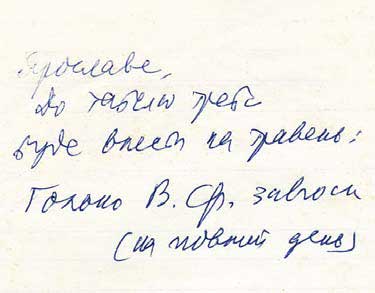 Ярославе,
До табелю треба
буде внести на травень:
Голько В. Ф. завгосп
(на повний день)